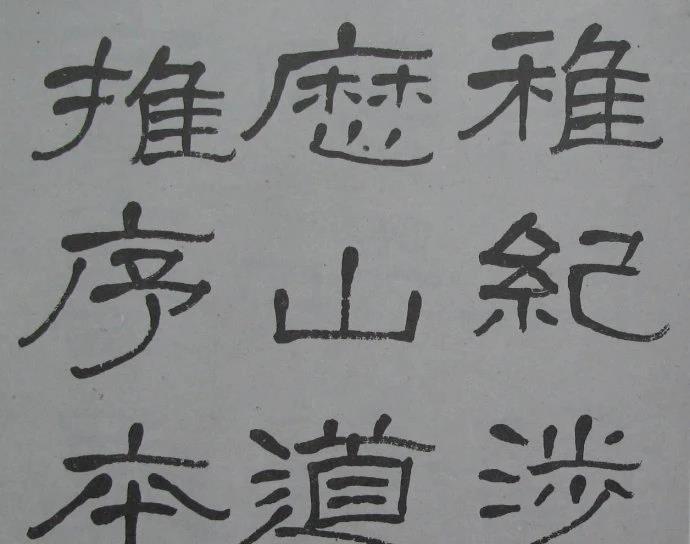 稚紀涉
歷山道
推序本